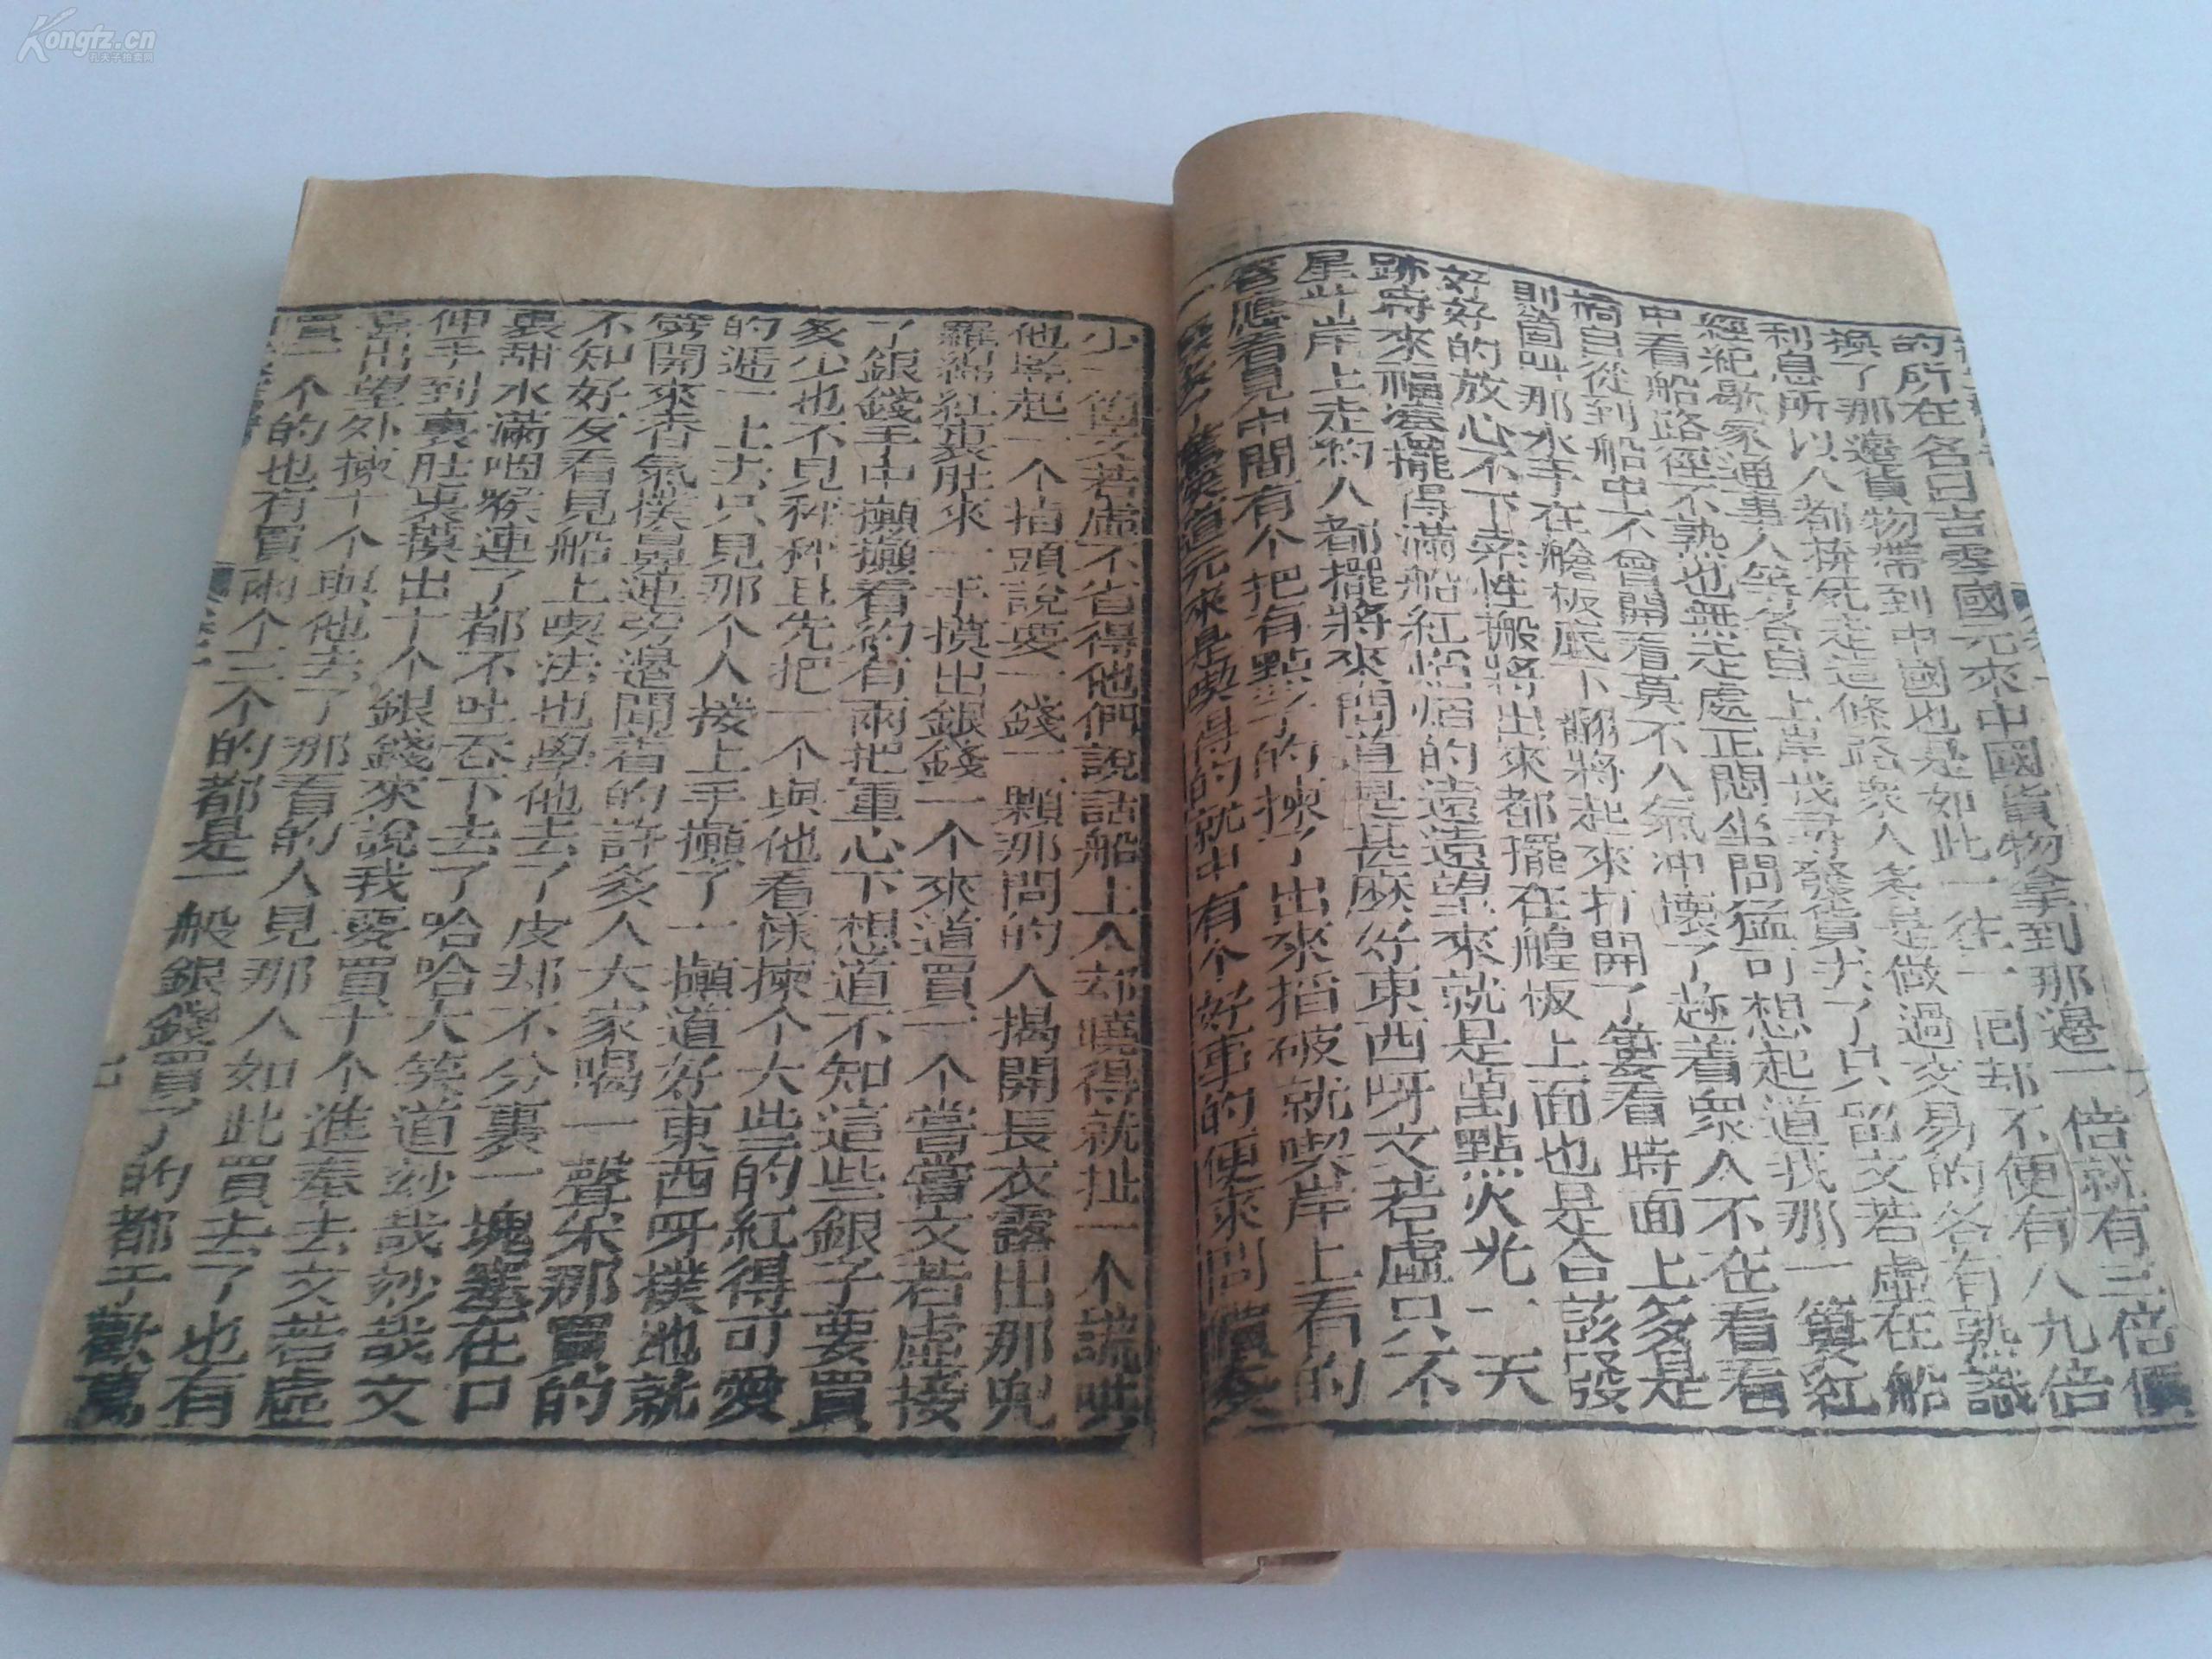 的所在名曰吉零國元來中國貨物拿到那邊一倍就有三倍價
換了那邊貨物帶到中國也是如此一往一回却不便有八九倍
利息所以人都拚死走這條路衆人多是做過交易的各有熟識
經紀歇家通事人等各自上岸找尋發貨去了只留文若虛在船
中看船路徑不熟也無走處正悶坐間猛可想起道我那一簍紅
橘自從到船中不曾開看莫不人氣冲壞了趁着衆人不在看看
則箇叫那水手在艙板底下翻將起來打開了簍看時面上多是
好好的放心不下索性搬將出來都擺在艎板上面也是合該發
跡時來福湊擺得滿船紅焰焰的遠遠望來就是萬點火光一天
星斗岸上走的人都攏將來問道是甚麽好東西呀文若虛只不
答應看見中間有个把有點頭的揀了出來掐破就喫岸上看的
一發多了驚笑道元來是喫得的就中有个好事的便來問價多
少一箇文若虛不省得他們說話船上人却曉得就扯一个謊哄
他竪起一个指頭說要一錢一顆那問的人揭開長衣露出那兜
羅綿紅裹肚來一手摸出銀錢一个來道買一个嘗嘗文若虛接
了銀錢手中攧攧看約有兩把重心下想道不知這些銀子要買
多少也不見秤秤且先把一个與他看樣揀个大些的紅得可愛
的遞一上去只見那个人接上手攧了一攧道好東西呀撲地就
劈開來香氣撲鼻連旁邊聞着的許多人大家喝一聲采那買的
不知好歹看見船上喫法也學他去了皮却不分裏一塊塞在口
裏甜水滿咽喉連了都不吐吞下去了哈哈大笑道妙哉妙哉又
伸手到裹肚裏摸出十个銀錢來說我要買十个進奉去文若虛
喜出望外揀十个與他去了那看的人見那人如此買去了也有
買一个的也有買兩个三个的都是一般銀錢買了的都千歡萬